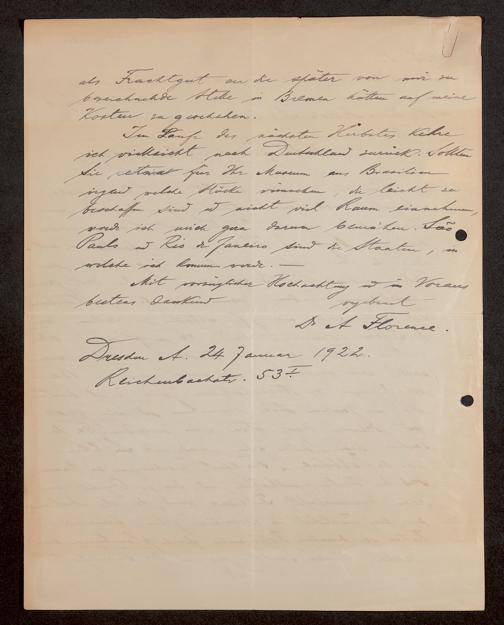 als Frachtgut an die später von mir zu
bezeichnende Stelle in Bremen hätten auf meine
Kosten zu geschehen.
Im Laufe des nächsten Herbstes kehre
ich vielleicht nach Deutschland zurück. Sollten
Sie etwas für Ihr Museum aus Brasilien
irgend welche Stücke wünschen, die leicht zu
beschaffen sind u nicht viel Raum einnehmen,
werde ich mich gern darum bemühen. São
Paulo u Rio de Janeiro sind die Staaten, in
welche ich komme werde. —
Mit vorzüglicher Hochachtung u im Voraus
bestens dankend ergebenst
Dr A Florence.
Dresden A. 24 Januar 1922.
Reichenbachstr. 53 I